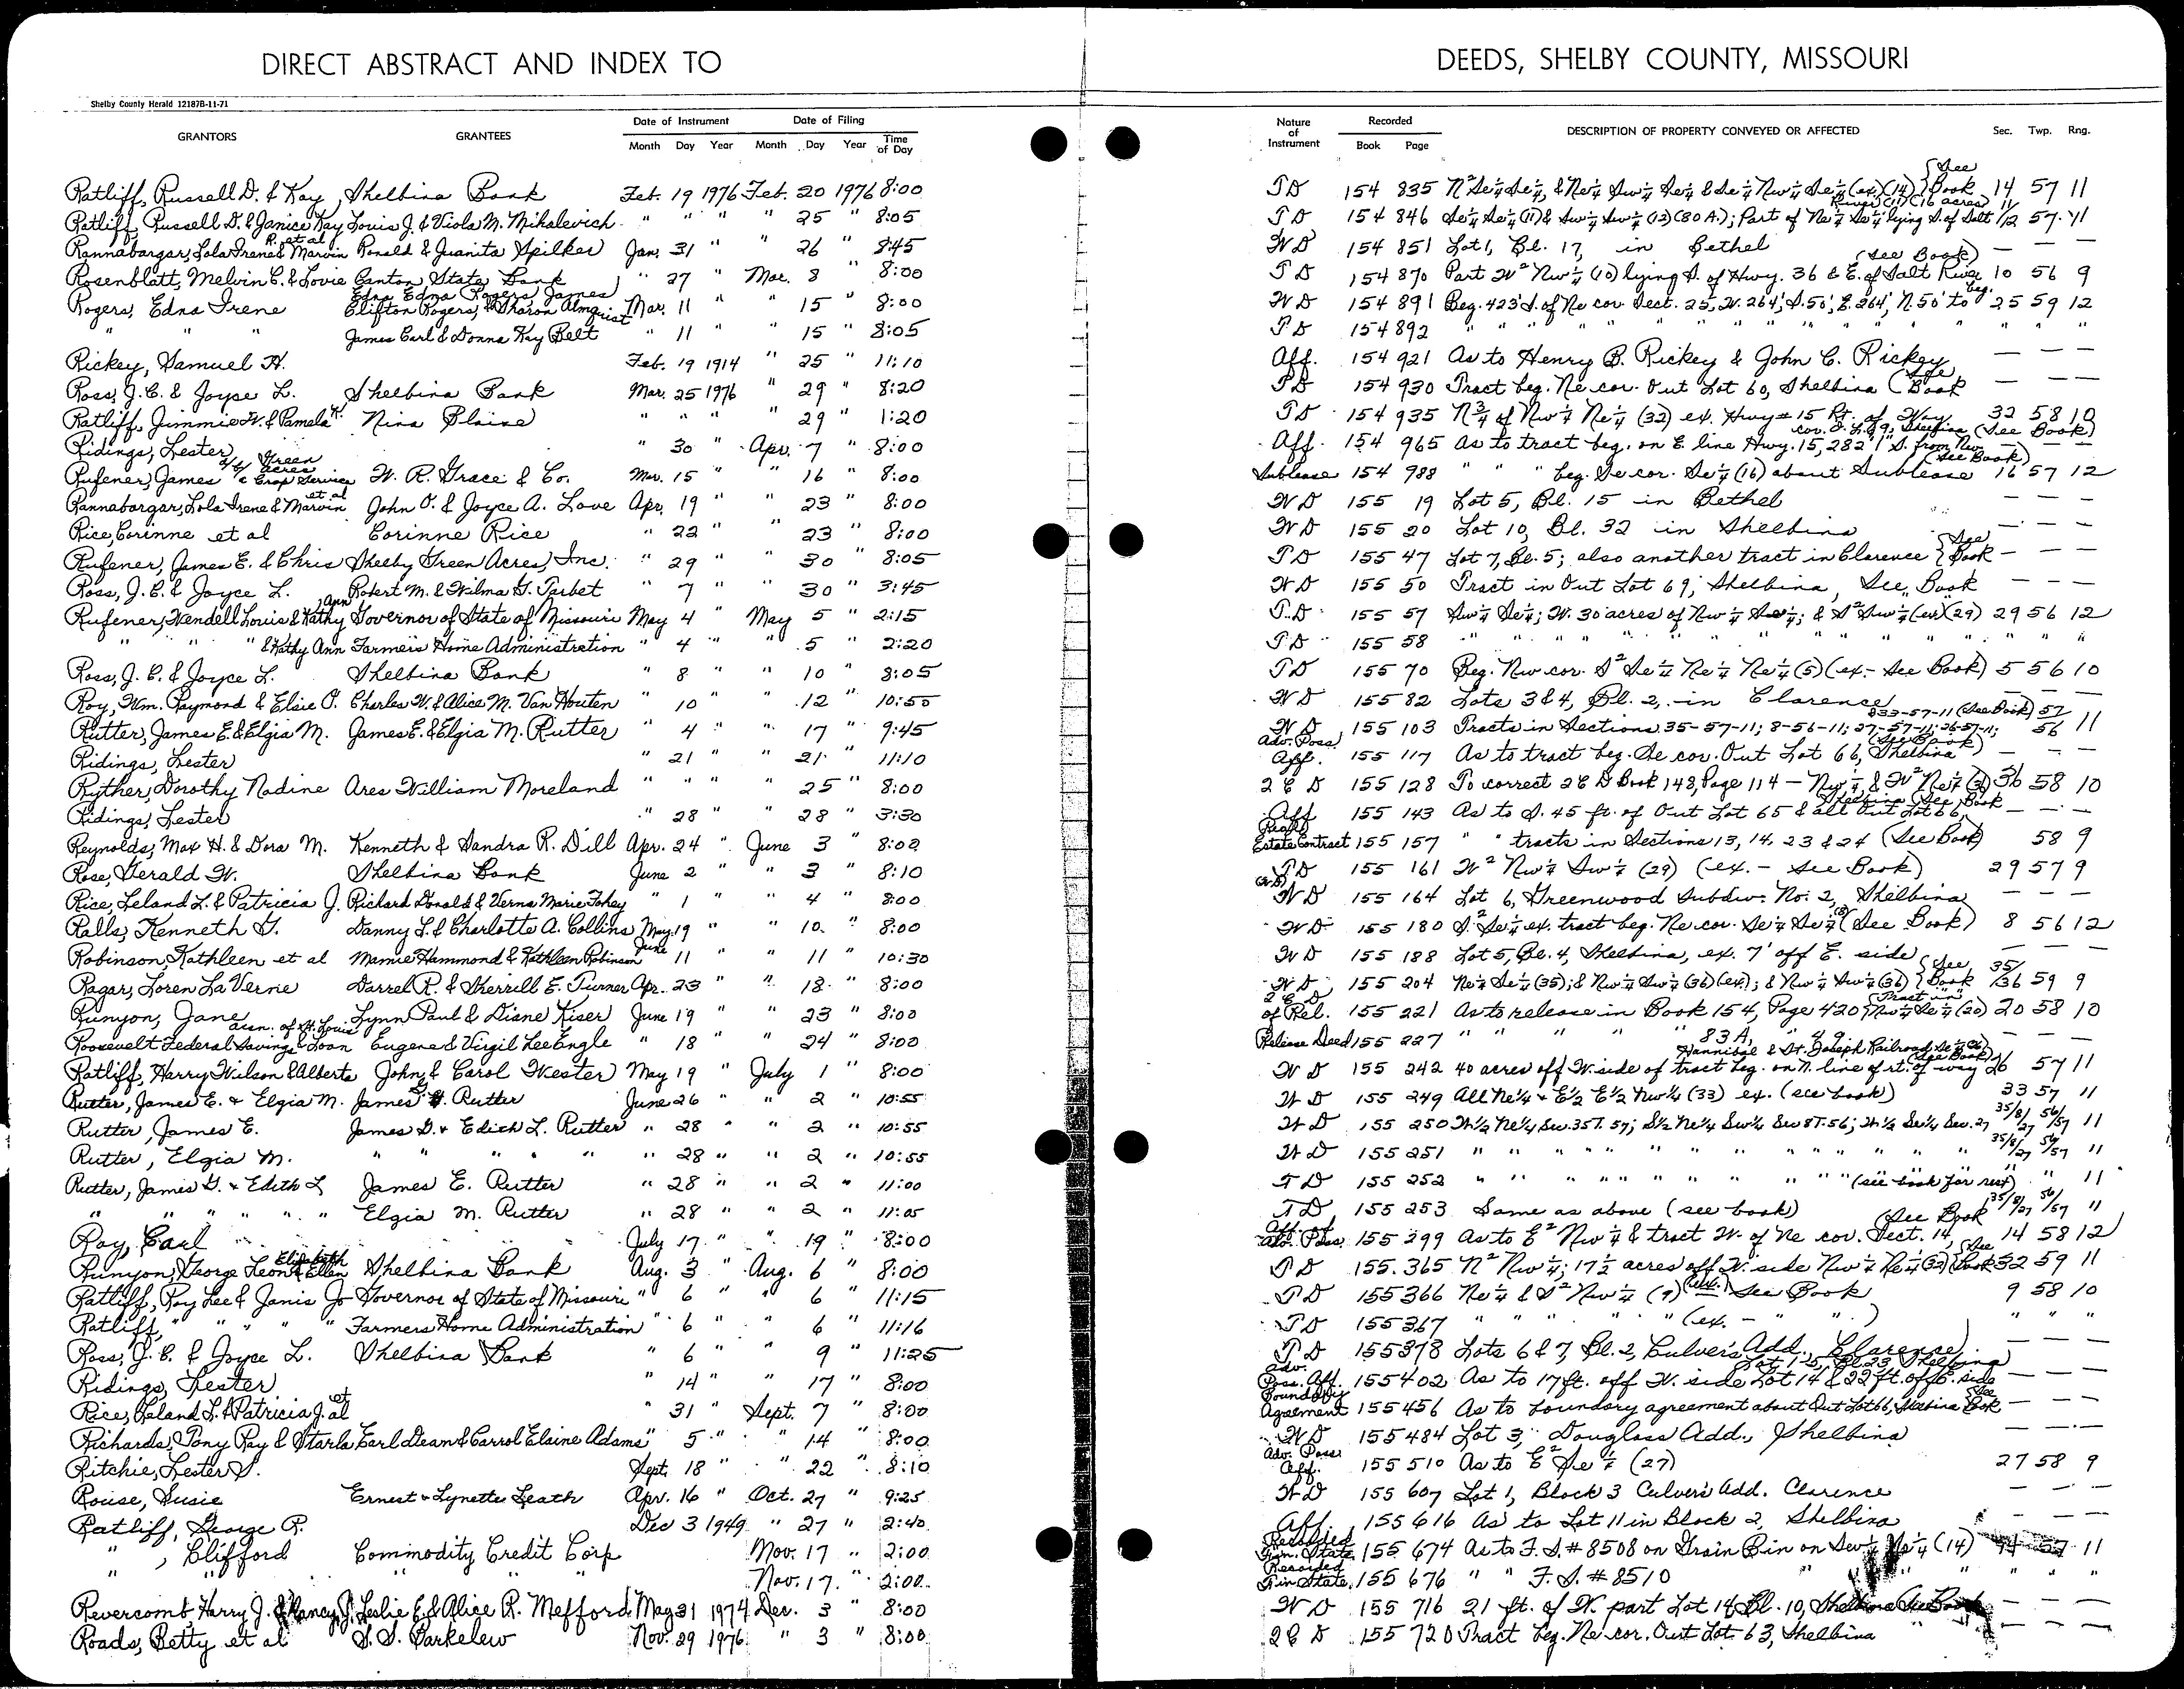 DIRECT ABSTRACT AND INDEX TO DEEDS, SHELBY COUNTY, MISSOURI
Shelby County Herald 12187B-11-71
GRANTORS GRANTEES Date of Instrument Month Day Year Date of Filing Month Day Year Time of Day Nature of Instrument Recorded Book Page DESCRIPTION OF PROPERTY CONVEYED OR AFFECTED Sec. Twp. Rng.
Ratliff, Russell D. & Kay Shelbina Bank Feb. 19 1976 Feb. 20 1976 8:00 T D 154 835 N² Se¼ Se¼, & Ne¼ Sw¼ Se¼ & Se¼ Nw¼ Se¼ (ex) (14) {See Book 14 57 11
Ratliff, Russell D. & Janice Kay Louis J. & Viola M. Mihalevich " " " " 25 " 8:05 T D 154 846 Se¼ Se¼ (11) & Sw¼ Sw¼ (12) (80 A.); Part of Ne¼ Se¼ lying S. of Salt River (11) (16 acres) 11/12 57 11
Rannabargar, Lola Irene & Marvin R. et al Ronald & Juanita Spilker Jan. 31 " " 26 " 8:45 W D 154 851 Lot 1, Bl. 17, in Bethel — — —
Rosenblatt, Melvin C. & Lovie Canton State Bank " 27 " Mar. 8 " 8:00 T D 154 870 Part W² Nw¼ (10) lying S. of Hwy. 36 & E. of Salt River (See Book) 10 56 9
Rogers, Edna Irene Edna Rogers, James Clifton Rogers, & Sharon Almquist Mar. 11 " " 15 " 8:00 W D 154 891 Beg. 423' S. of Ne cor. Sect. 25, W. 264', S. 50', E. 264', N. 50' to beg. 25 59 12
" " " James Earl & Donna Kay Belt " 11 " 15 " 8:05 T D 154 892 " " " " " " " " " " " "
Rickey, Samuel H. Feb. 19 1914 " 25 " 11:10 Aff. 154 921 As to Henry B. Rickey & John C. Rickey — — —
Ross, J. C. & Joyse L. Shelbina Bank Mar. 25 1976 " 29 " 8:20 T D 154 930 Tract beg. Ne cor. Out Lot 60, Shelbina (See Book — — —
Ratliff, Jimmie W. & Pamela K. Nina Blaise " " " " 29 " 1:20 T D 154 935 N¾ of Nw¼ Ne¼ (32) ex. Hwy # 15 Rt. of Way 32 58 10
Ridings, Lester " 30 " Apr. 7 " 8:00 Aff. 154 965 As to tract beg. on E line Hwy. 15, 282' 1" S. from Nw cor. O. L. 69, Shelbina (See Book) — —
Rufener, James d/b/ Green Acres & Crop Service W. R. Grace & Co. Mar. 15 " " 16 " 8:00 Sublease 154 988 " " " beg. Se cor. Se¼ (16) about Sublease (See Book) 16 57 12
Rannabargar, Lola Irene & Marvin et al John O. & Joyce A. Love Apr. 19 " " 23 " 8:00 W D 155 19 Lot 5, Bl. 15 in Bethel — — —
Rice, Corinne et al Corinne Rice " 22 " " 23 " 8:00 W D 155 20 Lot 10, Bl. 32 in Shelbina — — —
Rufener, James E. & Chris Shelby Green Acres, Inc. " 29 " " 30 " 8:05 T D 155 47 Lot 7, Bl. 5; also another tract in Clarence {See Book — — —
Ross, J. C. & Joyce L. Robert M. & Wilma G. Tarbet " 7 " 30 " 3:45 W D 155 50 Tract in Out Lot 69, Shelbina, See Book — — —
Rufener, Wendell Louis & Kathy Ann Governor of State of Missouri May 4 " May 5 " 2:15 T. D. 155 57 Sw¼ Se¼; W. 30 acres of Nw¼ Se¼; & S² Sw¼ (ex) (29) 29 56 12
" " " & Kathy Ann Farmers Home Administration " 4 " " 5 " 2:20 T D 155 58 " " " " " " " " " " "
Ross, J. C. & Joyce L. Shelbina Bank " 8 " " 10 " 8:05 T D 155 70 Beg. Nw cor. S² Se¼ Ne¼ Ne¼ (5) (ex - See Book) 5 56 10
Roy, Wm. Raymond & Elsie O. Charles W. & Alice M. Van Houten " 10 " " 12 " 10:50 W D 155 82 Lots 3 & 4, Bl. 2, in Clarence — — —
Rutter, James E. & Elgia M. James E. & Elgia M. Rutter " 4 " " 17 " 9:45 W D 155 103 Tracts in Sections 35-57-11; 8-56-11; 27-57-11; 26-57-11; &33-57-11 (See Book) 57 56 11
Ridings, Lester " 21 " " 21 11:10 Adv. Poss. Aff. 155 117 As to tract beg. Se cor. Out Lot 66, Shelbina (See Book) — — —
Ryther, Dorothy Nadine Ares William Moreland " " " " 25 " 8:00 2 C D 155 128 To correct 2 C D Book 148, Page 114 - Nw¼, & W² Ne¼ (36) 36 58 10
Ridings, Lester " 28 " " 28 " 3:30 Aff. 155 143 As to S. 45 ft. of Out Lot 65 & all Out Lot 66, Shelbina (See Book — — —
Reynolds, Max H. & Dora M. Kenneth & Sandra R. Dill Apr. 24 " June 3 " 8:02 Real Estate Contract 155 157 " " tracts in Sections 13, 14, 23 & 24 (See Book) 58 9
Rose, Gerald W. Shelbina Bank June 2 " " 3 " 8:10 T D 155 161 W² Nw¼ Sw¼ (29) (ex. - See Book) 29 57 9
Rice, Leland L. & Patricia J. Richard Donald & Verna Marie Fohey " 1 " " 4 " 8:00 W D 155 164 Lot 6, Greenwood Subdiv. No. 2, Shelbina — — —
Ralls, Kenneth G. Danny L. & Charlotte A. Collins May 19 " " 10 " 8:00 W D 155 180 S² Se¼ ex. tract beg. Ne cor. Se¼ Se¼ (8) (See Book) 8 56 12
Robinson, Kathleen et al Mamie Hammond & Kathleen Robinson June 11 " " 11 " 10:30 W D 155 188 Lot 5, Bl. 4, Shelbina, ex. 7' off E. side — — —
Ragar, Loren La Verne Darrel R. & Sherrill E. Turner Apr. 23 " " 18 " 8:00 W D 155 204 Ne¼ Se¼ (35); & Nw¼ Sw¼ (36) (ex); & Nw¼ Sw¼ (36) {See Book 35/36 59 9
Runyon, Jane Lynn Paul & Diane Kiser June 19 " " 23 " 8:00 2 C D of Rel. 155 221 As to release in Book 154, Page 420, Tract in Nw¼ Se¼ (20) 20 58 10
Roosevelt Federal Savings & Loan assn. of St. Louis Eugene & Virgil Lee Engle " 18 " " 24 " 8:00 Release Deed 155 227 " " " " " 83 A, " 49 — —
Ratliff, Harry Wilson & Alberta John & Carol Wester May 19 " July 1 " 8:00 W D 155 242 40 acres off W. side of tract beg. on N. line of rt. of way Hannibal & St. Joseph Railroad Se¼ (26) (See Book) 26 57 11
Rutter, James E. & Elgia M. James G. Rutter June 26 " " 2 " 10:55 W D 155 249 All Ne¼ & E½ E½ Nw¼ (33) ex. (see book) 33 57 11
Rutter, James E. James G. & Edith L. Rutter " 28 " " 2 " 10:55 W D 155 250 W½ Ne¼ Sec. 35 T. 57; S½ Ne¼ Sw¼ Sec 8 T. 56; W½ Se¼ Sec. 27 35/8/27 56/57 11
Rutter, Elgia M. " " " " " " 28 " " 2 " 10:55 W D 155 251 " " " " " " " " " " " " 35/8/27 56/57 "
Rutter, James G. & Edith L James E. Rutter " 28 " " 2 " 11:00 T D 155 252 " " " " " " " " " " (see book for rest) " " 11
" " " " " " Elgia M. Rutter " 28 " " 2 " 11:05 T D 155 253 Same as above (see book) 35/8/27 56/57 "
Roy, Carl July 17 " " 19 " 8:00 Aff. of Adv. Poss. 155 299 As to E² Nw¼ & tract W. of Ne cor. Sect. 14, (See Book 14 58 12
Runyon, George Leon & Ellen Elizabeth Shelbina Bank Aug. 3 " Aug. 6 " 8:00 T D 155 365 N² Nw¼; 17½ acres off W. side Nw¼ Ne¼ (32) {See Book 32 59 11
Ratliff, Roy Lee & Janis Jo Governor of State of Missouri " 6 " " 6 " 11:15 T D 155 366 Ne¼ & S² Nw¼ (9) (ex.) See Book 9 58 10
Ratliff, " " " " " Farmers Home Administration " 6 " " 6 " 11:16 T D 155 367 " " " " " (ex. - " " ) " " "
Ross, J. C. & Joyce L. Shelbina Bank " 6 " " 9 " 11:25 T D 155 378 Lots 6 & 7, Bl. 2, Culver's Add., Clarence — — —
Ridings, Lester " 14 " " 17 " 8:00 Adv. Poss. Aff. 155 402 As to 17 ft. off W. side Lot 14 & 22 ft. off E. side Lot 15, Bl. 23, Shelbina — — —
Rice, Leland L. & Patricia J. et al " 31 " Sept. 7 " 8:00 Boundary Agreement 155 456 As to boundary agreement about Out Lot 66, Shelbina {See Book — — —
Richards, Tony Ray & Starla Earl Dean & Carrol Elaine Adams " 5 " " 14 " 8:00 W D 155 484 Lot 3, Douglass Add., Shelbina — — —
Ritchie, Lester S. Sept. 18 " " 22 " 8:10 Adv. Poss. Aff. 155 510 As to E² Se¼ (27) 27 58 9
Rouse, Susie Ernest & Lynette Leath Apr. 16 " Oct. 27 " 9:25 W D 155 607 Lot 1, Block 3 Culver's Add. Clarence — — —
Ratliff, George R. Dec 3 1949 " 27 " 2:40 Aff. 155 616 As to Lot 11 in Block 2, Shelbina — — —
" , Clifford Commodity Credit Corp Nov. 17 " 2:00 Recorded Fin. State. 155 674 As to F. S. # 8508 on Grain Bin on Sw¼ Ne¼ (14) 14 57 11
" " " " " Nov. 17 " 2:00 Recorded Fin State. 155 676 " " F. S. # 8510 " " " " "
Revercomb Harry J. & Nancy J. Leslie E. & Alice R. Mefford May 31 1974 Dec. 3 " 8:00 W D 155 716 21 ft. of W. part Lot 14 Bl. 10, Shelbina See Book — — —
Roads, Betty et al S. S. Barkelew Nov. 29 1976 " 3 " 8:00 2 C D 155 720 Tract beg. Ne cor. Out Lot 63, Shelbina — — —